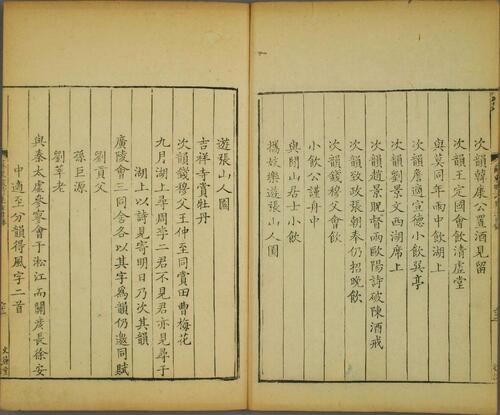 次韻韓康公置酒見留
次韻王定國會飲清虛堂
與莫同年雨中飲湖上
次韻詹適宣德小飲巽亭
次韻劉景文西湖席上
次韻趙景貺督兩歐陽詩破陳酒戒
次韻致政張朝奉仍招晚飲
次韻錢穆父會飲
小飲公謹舟中
與閒山居士小飲
攜妓樂遊張山人園
遊張山人園
吉祥寺賞牡丹
次韻錢穆父王仲至同賞田曹梅花
九月湖上尋周李二君不見君亦見尋于
湖上以詩見寄明日乃次其韻
廣陵會三同舍各以其字為韻仍邀同賦
劉貢父
孫巨源
劉莘老
與秦太虛參寥會于淞江而關彥長徐安
中適至分韻得風字二首